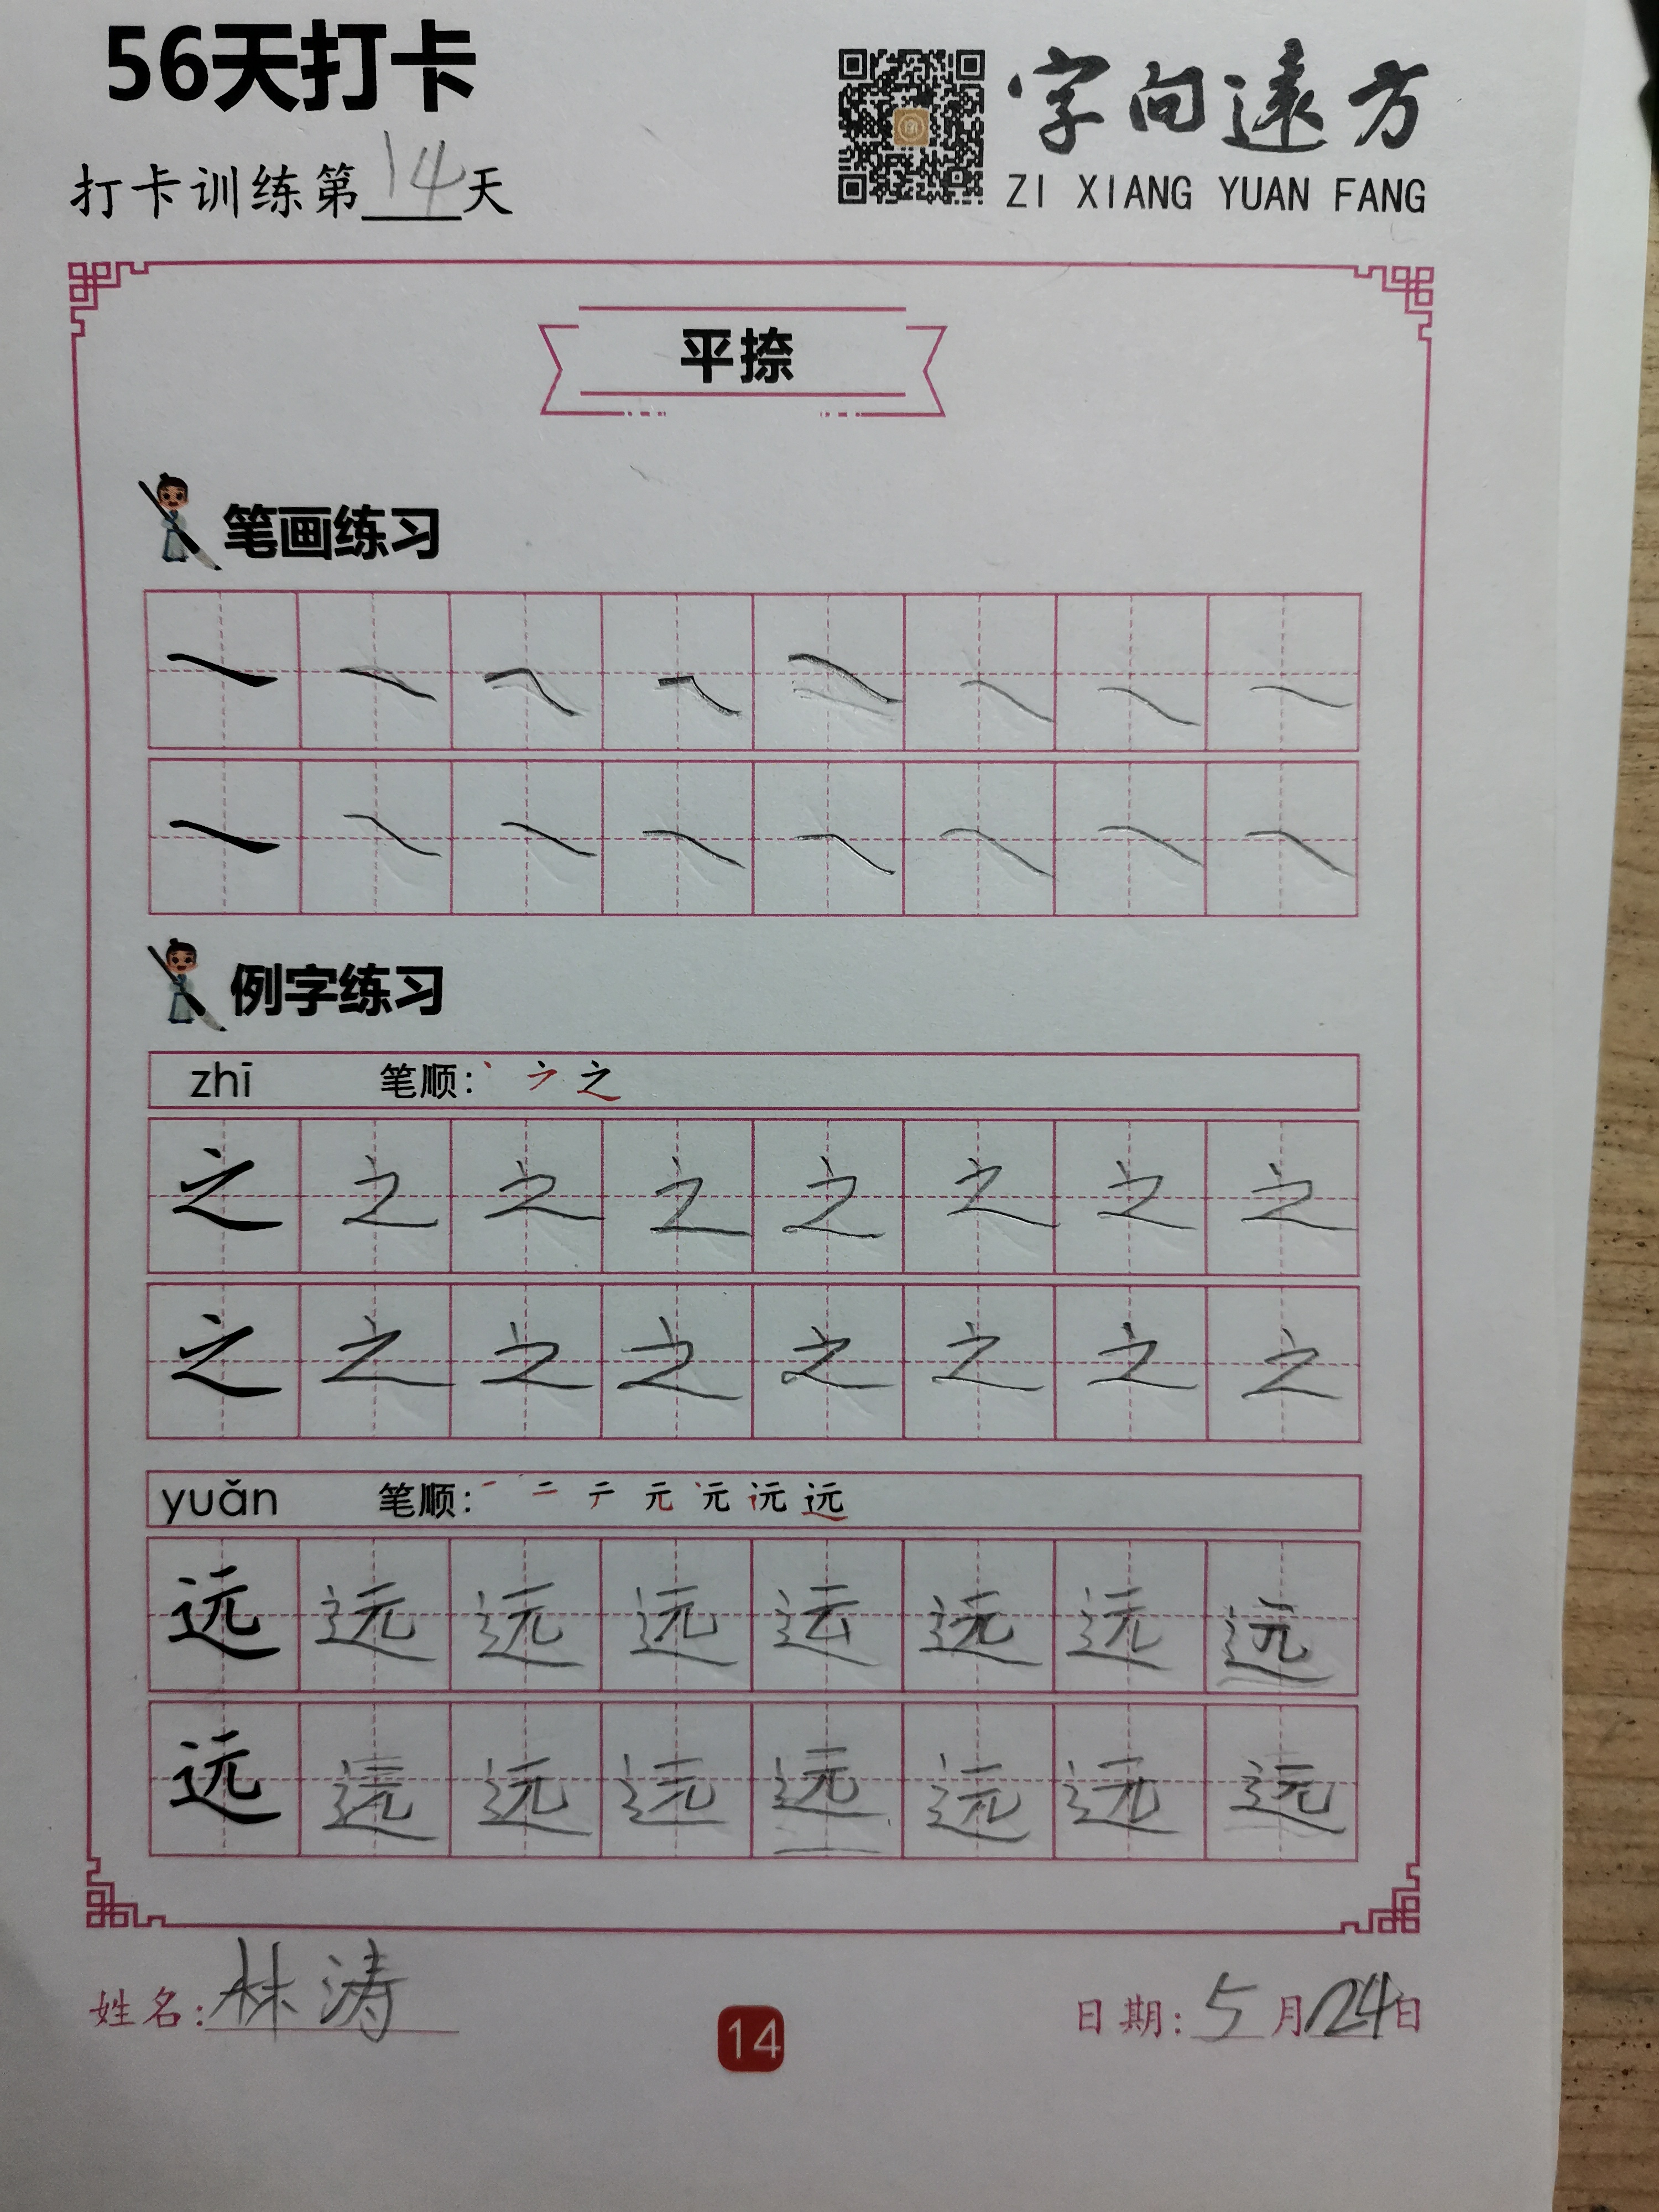 56天打卡
字向遠方
打卡训练第14天
ZI XIANG YUAN FANG
平捺
笔画练习
例字练习
zhī 笔顺: 丶 ㇇ 之
之 之 之 之 之 之 之 之
之 之 之 之 之 之 之 之
yuǎn 笔顺: 一 二 テ 元 远
远 远 远 远 远 远 远 远
远 远 远 远 远 远 远 远
姓名: 林涛
14
日期: 5月24日